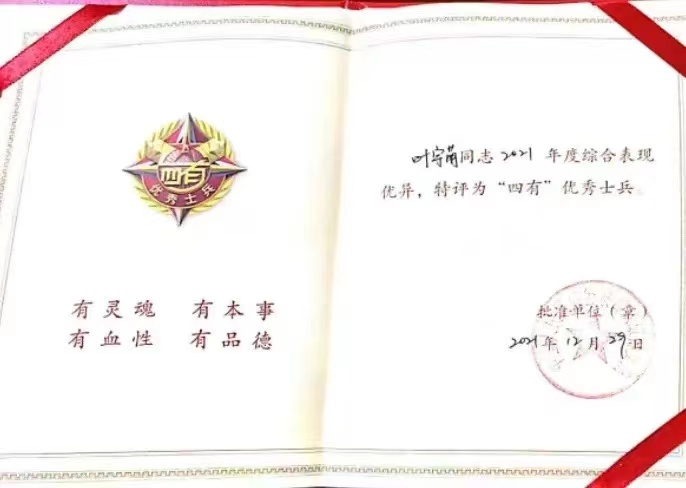 四有
优秀士兵
有灵魂 有本事
有血性 有品德
同志2021年度综合表现
优异，特评为“四有”优秀士兵。
批准单位（章）
2021年12月29日